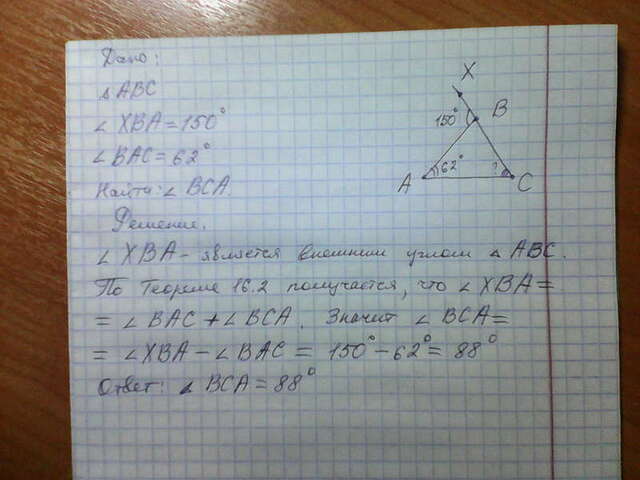 Дано:
△ABC
∠XBA=150°
∠BAC=62°
Найти: ∠BCA.
Решение.
∠XBA- является внешним углом △ABC.
По Теореме 16.2 получается, что ∠XBA=
=∠BAC+∠BCA. Значит ∠BCA=
=∠XBA-∠BAC=150°-62°=88°
Ответ: ∠BCA=88°
X
B
150°
A
62°
?
C